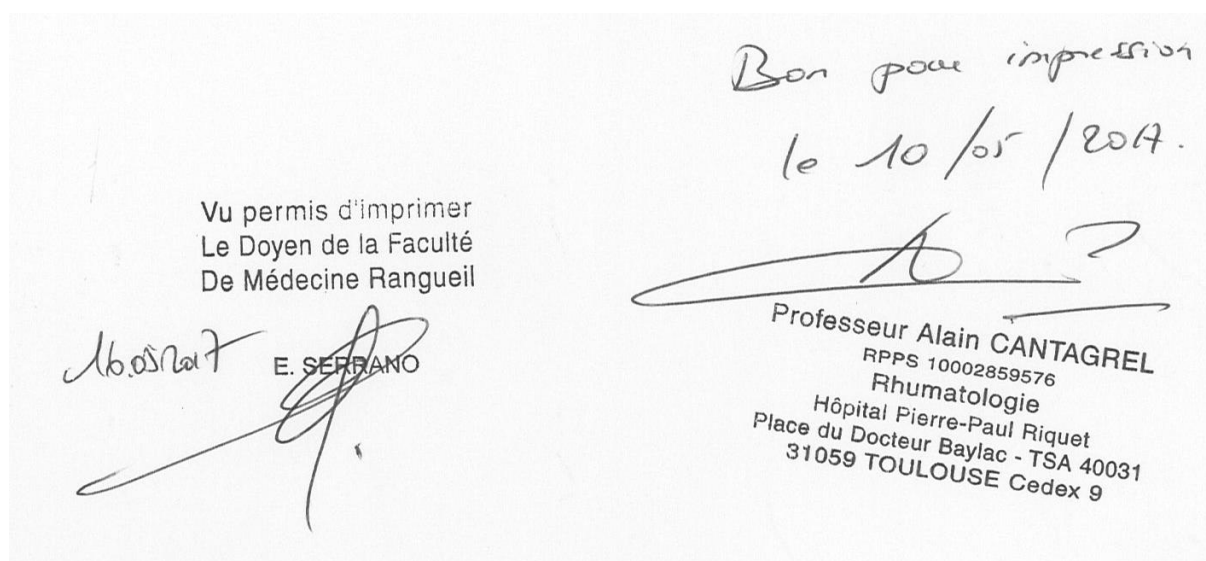 Bon pour impression
le 10/05/2017.
Vu permis d'imprimer
Le Doyen de la Faculté
De Médecine Rangueil
16.05.2017
E. SERRANO
Professeur Alain CANTAGREL
RPPS 10002859576
Rhumatologie
Hôpital Pierre-Paul Riquet
Place du Docteur Baylac - TSA 40031
31059 TOULOUSE Cedex 9